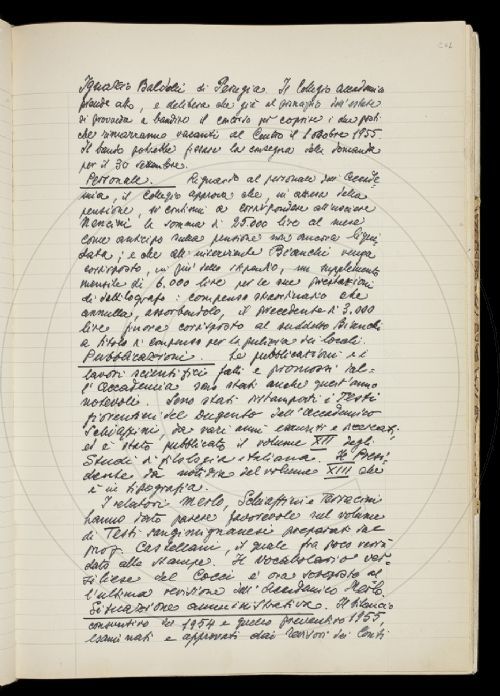 Ignazio Baldelli di Perugia. Il Collegio accademico
prende atto, e delibera che già al principio dell'estate
si provveda a bandire il concorso per coprire i due posti
che rimarranno vacanti al Centro il 1 ottobre 1955
Il bando potrebbe fissare la consegna delle domande
per il 30 settembre.
Personale. Riguardo al personale dell'Accade-
mia, il Collegio approva che, in attesa della
pensione, si continui a corrispondere all'usciere
Mancini la somma di 25.000 lire al mese
come anticipo sulla pensione non ancora liqui
data; e che all'inserviente Bianchi venga
corrisposto, in più dello stipendio, un supplemento
mensile di 6.000 lire per le sue prestazioni
di dattilografo: compenso straordinario che
annulla, assorbendolo, il precedente di 3.000
lire finora corrisposto al suddetto Bianchi
a titolo di compenso per la pulizia dei locali.
Pubblicazioni. Le pubblicazioni e i
lavori scientifici fatti e promossi dal-
l'Accademia sono stati anche quest'anno
notevoli. Sono stati ristampati i Testi
fiorentini del Dugento dell'accademico
Schiaffini, da vari anni esauriti e ricercati,
ed è stato pubblicato il volume XII degli
Studi di filologia italiana. Il Presi-
dente dà notizia del volume XIII che
è in tipografia.
I relatori Merlo, Schiaffini e Terracini
hanno dato parere favorevole sul volume
di Testi sangimignanesi preparati dal
prof. Castellani, il quale fra poco verrà
dato alle stampe. Il Vocabolario ver-
siliese del Cocci è ora sottoposto al
l'ultima revisione dell'accademico Merlo.
Situazione amministrativa. Il bilancio
consuntivo del 1954 e quello preventivo 1955,
esaminati e approvati dai Revisori dei Conti